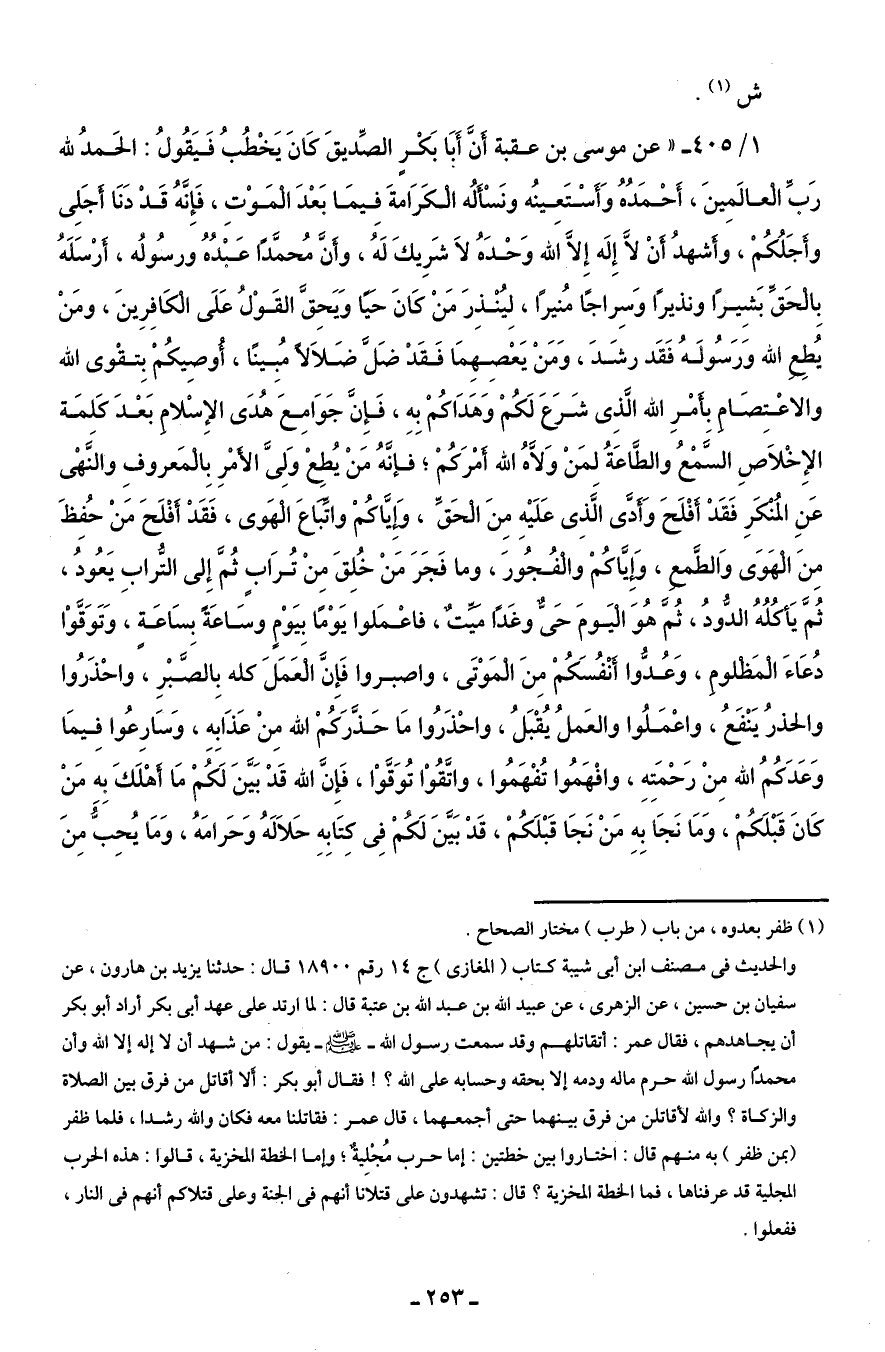 ش (١) .
١/ ٤٠٥ـ « عن موسى بن عقبة أَنَّ أَبَا بَكْرٍ الصِّدِيقَ كَانَ يَخْطُبُ فَيَقُولُ : الحَمدُ لله
رَبِّ العالَمينَ ، أَحْمَدُهُ وَأَسْتَعينُه ونَسْأَلُه الكَرَامَةَ فيمَا بَعْدَ المَوْت ، فَإنَّهُ قَدْ دَنَا أجَلى
وأَجَلُكُمْ ، وأشهدُ أنْ لاَّ إلَه إلاَّ الله وَحْدَهُ لاَ شَرِيكَ لَهُ ، وأَنَّ مُحمدًا عَبْدُهُ ورسُولُه ، أَرْسَلَهُ
بِالحَقِّ بَشيرًا ونذيرًا وَسراجًا مُنيرًا ، ليُنْذرَ مَنْ كَانَ حَيّا وَيَحقَّ القَوْلُ عَلَى الكَافرِينَ ، ومَنْ
يُطِعِ الله وَرَسُولَهُ فَقَد رشَدَ ، وَمَنْ يَعْصهِمَا فَقَدْ ضَلَّ ضَلاَلاً مُبينًا ، أُوصيكُمْ بتقْوى الله
والاعْتصَامِ بأَمْرِ الله الَّذى شَرَعَ لَكُمْ وَهَدَاكُمْ بِه ، فَإنَّ جَوَامعَ هُدَى الإسْلامِ بَعْدَ كَلمَة
الإخْلاَصِ السَّمْعُ والطَّاعَةُ لمَنْ وَلاَّهُ الله أمْرَكُمْ ؛ فإنَّهُ مَنْ يُطِعْ وَلىَّ الأمْرِ بالمَعروف والنَّهْى
عَنِ المُنْكَرِ فَقَدْ أَفْلَحَ وَأَدَّى الَّذى عَلَيْه منَ الحَقِّ ، وَإيَّاكُمْ واتِّبَاعَ الهَوى ، فَقَدْ أَفْلَحَ مَنْ حُفظَ
مِنَ الْهَوَى وَالطَّمعِ ، وَإيَّاكُمْ والْفُجُورَ ، وما فَجَرَ مَنْ خُلقَ منْ تُرَابٍ ثُمَّ إلى التُّراب يَعُودُ ،
ثُمَّ يَأكُلُهُ الدُّودُ ، ثُمَّ هُوَ الْيَومَ حَىٌّ وغَدًا مَيِّتٌ ، فاعْمَلوا يَوْمًا بيَوْمٍ وسَاعَةً بسَاعَةٍ ، وتَوَقَّوْا
دُعَاءَ المَظْلومِ ، وَعُدُّوا أَنْفُسَكُمْ مِنَ المَوْتَى ، واصبروا فَإنَّ العَمَلَ كله بالصَّبْرِ ، واحْذَرُوا
والحَذرُ يَنْفَعُ ، واعْمَلُوا والعَملُ يُقْبَلُ ، واحْذَرُوا مَا حَذَّرَكُمْ الله منْ عَذَابِه ، وَسَارِعُوا فيمَا
وَعَدَكُمُ الله منْ رَحْمَته ، وافْهَمُوا تُفْهَمُوا ، واتَّقُوْا تُوَقَّوْا ، فَإنَّ الله قَدْ بَيَّنَ لَكُمْ مَا أَهْلَكَ به مَنْ
كَانَ قَبْلَكُمْ ، وَمَا نَجَا بِه مَنْ نَجَا قَبْلَكُمْ ، قَدْ بَيَّنَ لَكُمْ فِى كِتَابِه حَلاَلَهُ وَحَرَامَهُ ، وَمَا يُحِبُّ مِنَ
(١) ظفر بعدوه ، من باب ( طرب ) مختار الصحاح .
والحديث فى مصنف ابن أبى شيبة كتاب ( المغازى ) ج ١٤ رقم ١٨٩٠٠ قال : حدثنا يزيد بن هارون ، عن
سفيان بن حسين ، عن الزهرى ، عن عبيد الله بن عبد الله بن عتبة قال : لما ارتد على عهد أبى بكر أراد أبو بكر
أن يجاهدهم ، فقال عمر : أتقاتلهم وقد سمعت رسول الله ـ ﷺ ـ يقول : من شهد أن لا إله إلا الله وأن
محمدًا رسول الله حرم ماله ودمه إلا بحقه وحسابه على الله ؟ ! فقال أبو بكر : ألا أقاتل من فرق بين الصلاة
والزكاة ؟ والله لأقاتلن من فرق بينهما حتى أجمعهما ، قال عمر : فقاتلنا معه فكان والله رشدا ، فلما ظفر
(بمن ظفر ) به منهم قال : اختاروا بين خطتين : إما حرب مُجْليةٌ ؛ وإما الخطة المخزية ، قالوا : هذه الحرب
المجلية قد عرفناها ، فما الخطة المخزية ؟ قال : تشهدون على قتلانا أنهم فى الجنة وعلى قتلاكم أنهم فى النار ،
ففعلوا .
ـ ٢٥٣ ـ